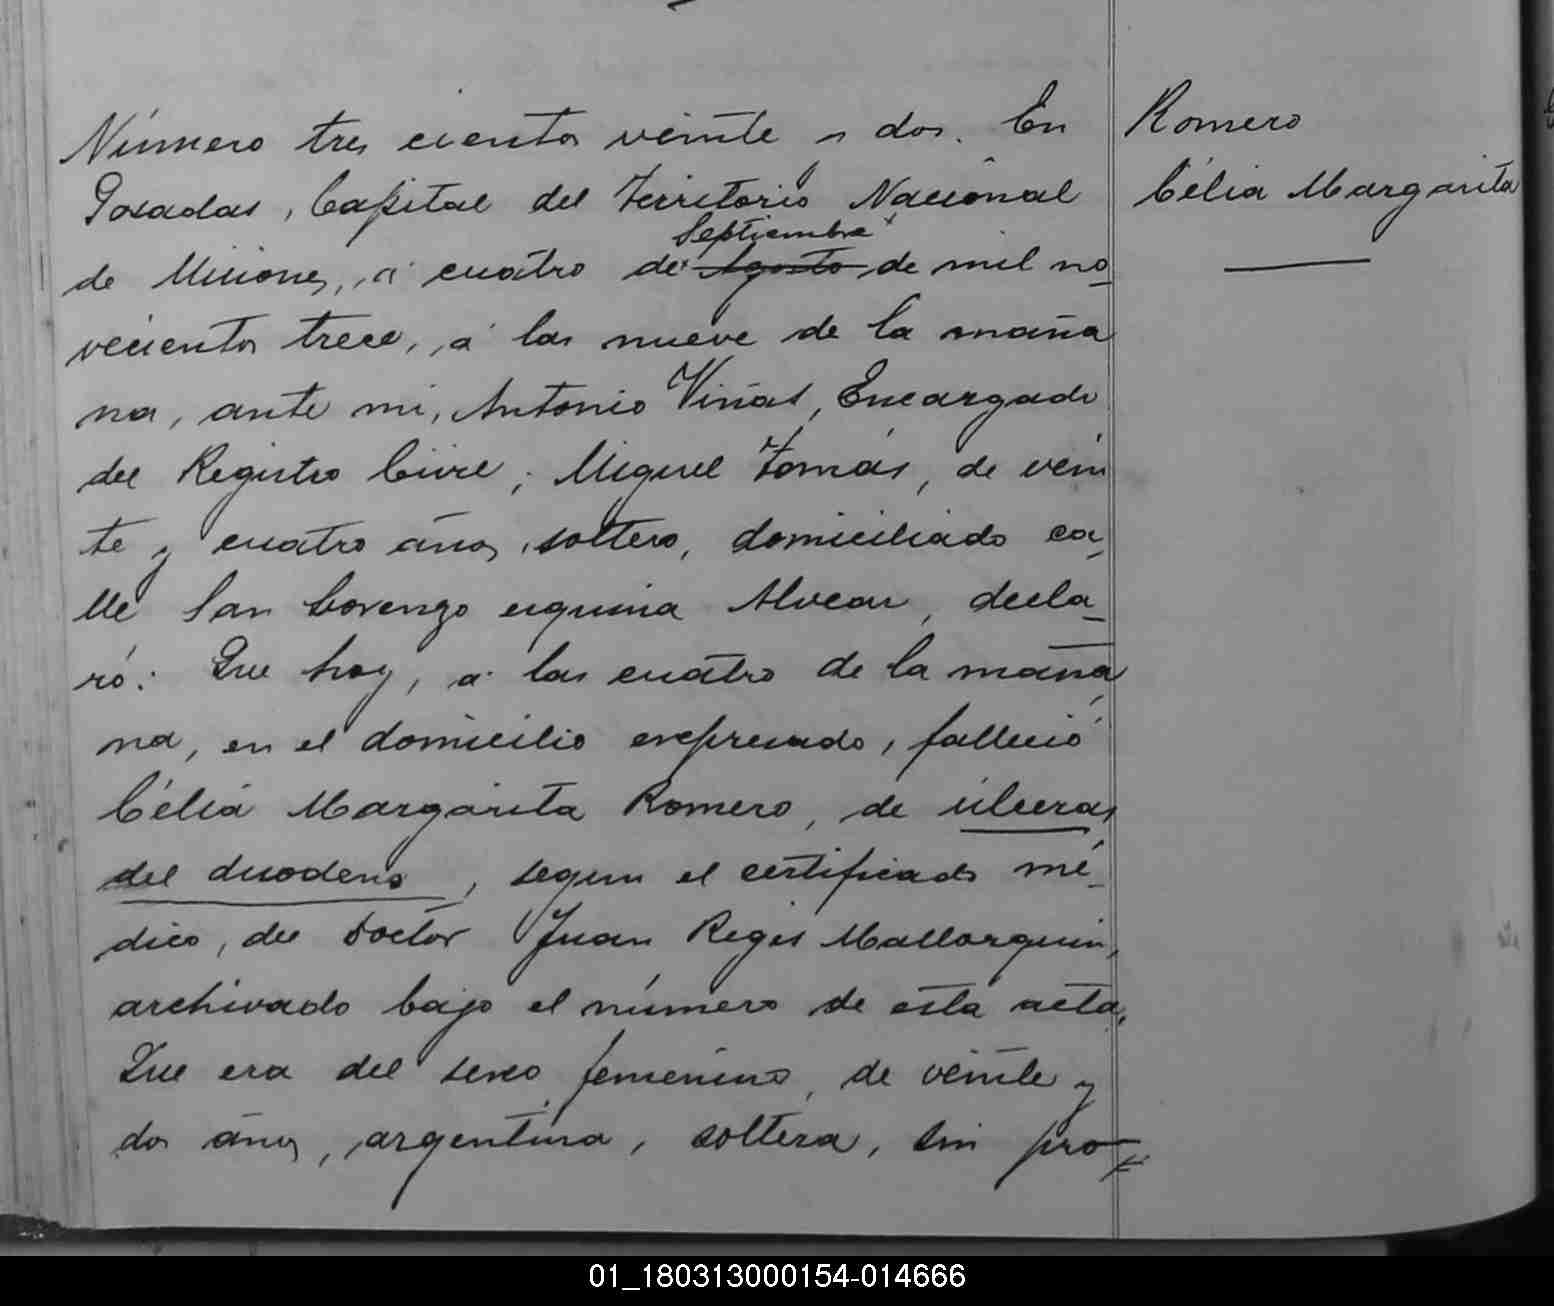 Número tres cientos veinte y dos. En
Posadas, Capital del Territorio Nacional
Septiembre
de Misiones, á cuatro de Agosto de mil no_
vecientos trece, á las nueve de la maña
na, ante mi, Antonio Viñas, Encargado
del Registro Civil; Miguel Tomás, de vein
te y cuatro años, soltero, domiciliado ca_
lle San Lorenzo esquina Alvear, decla_
ró: Que hoy, á las cuatro de la maña_
na, en el domicilio expresado, falleció
Célia Margarita Romero, de úlceras
del duodeno, segun el certificado mé_
dico, del Doctor Juan Regis Mallorquin,
archivado bajo el número de esta acta.
Que era del sexo femenino, de veinte y
dos años, argentina, soltera, sin pro_
Romero
Célia Margarita
01_180313000154-014666